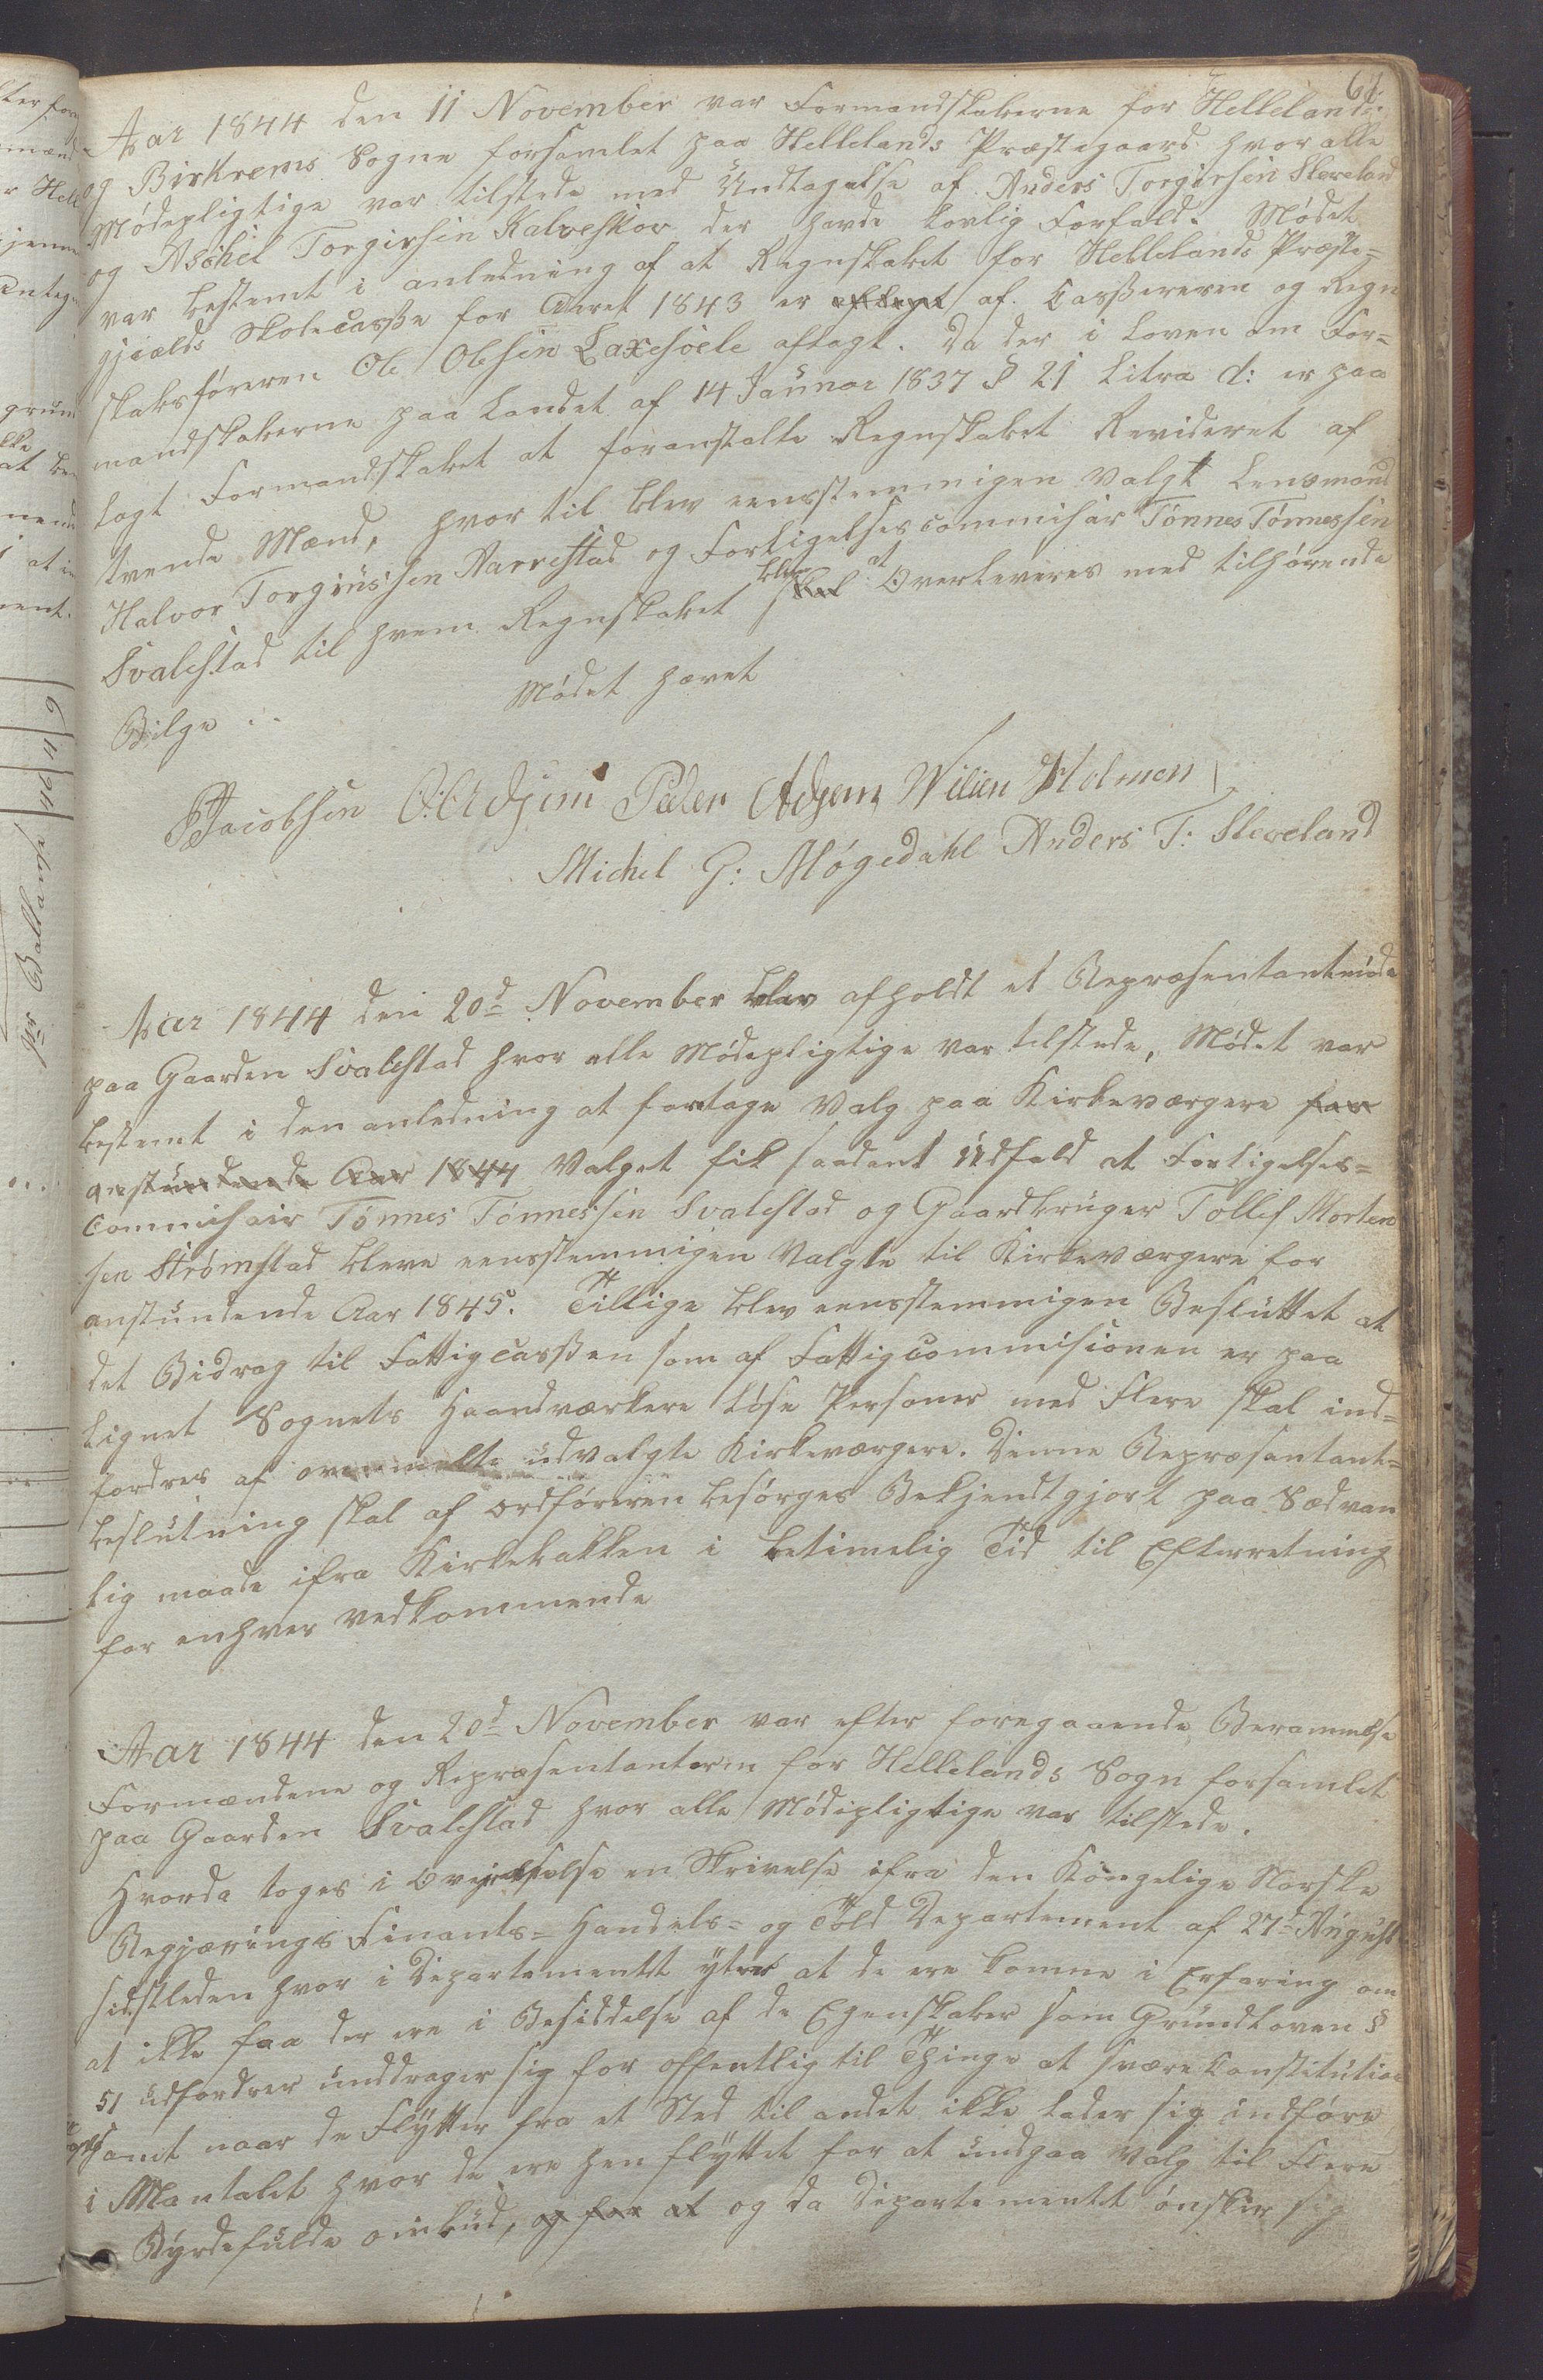 61.
Aar 1844 den 11 November var Formandskaberne for Hellelands
og Birkrems Sogne forsamlet paa Hellelands Præstegaard hvor alle
Mødepligtige var tilstede med Undtagelse af Anders Torgirsen Sleveland
og Aschel Torgirsen Kalveskov der havde lovlig Forfald. Mødet
var bestemt i anledning af at Regnskabet for Hellelands Præste=
gjælds Skolecasse for Aaret 1843 er aflagt af Cassereren og Regn
skabsføreren Ole Olesen Laxesvele aflagt. Da der i Loven om For=
mandskaberne paa Landet af 14 Januar 1837 § 21 Litra d: er paa
lagt Formandskabet at foranstalte Regnskabet Revideret af
tvende Mænd, hvor til blev eensstemmigen Valgt Lensmand
Halvor Torginssen Aarrestad og Forligelsescommisær Tønnes Tønnessen
blev at
Svalestad til hvem Regnskabet skal Overleveres med tilhørende
Bilge
Mødet hævet
Jacobsen O: Adsem Peder Adsem Wilien Holmen
Michel G: Møgedahl Anders T: Sleveland
Aar 1844 den 20d November blev afholdt et Repræsentantmøde
paa Gaarden Svalestad hvor alle Mødepligtige var tilstede, Mødet var
bestemt i den anledning at fortage Valg paa Kirkeværgere for
anstundende Aar 1844 Valget fik saadant Udfald at Forligelses=
Commisair Tønnes Tønnessen Svalestad og Gaardbruger Tollef Morten
sen Strømstad bleve eensstemmigen Valgte til Kirkeværgere for
anstundende Aar 1845. Tillige blev eensstemmigen Besluttet at
det Bidrag til Fattigcassen som af Fattigcommisionen er paa
lignet Sognets Haandværkere Løse Personer med Flere skal ind=
fordres af ovenmelte udvalgte Kirkeværgere. Denne Repræsentant=
beslutning skal af Ordføreren besørges Bekjendtgjort paa Sædvan
lig maade ifra Kirkebakken i betimelig Tid til Efterretning
for enhver Vedkommende
Aar 1844 den 20d November var efter foregaaende Berammelse
Formændene og Repræsentanterne for Hellelands Sogn forsamlet
paa Gaarden Svalestad hvor alle Mødepligtige var tilstede.
Hvorda toges i Overveielse en Skrivelse ifra den Kongelige Norske
Regjærings Finants= Handels= og Told Departement af 27d August
sidstleden hvor i Departementet ytrer at de ere komne i Erfaring om
at ikke faa der ere i Besiddelse af de Egenskaber som Grundloven §
51 udfordrer unddrager sig for offentlig til Thinge at svære Constitution
samt naar de Flytter fra et Sted til andet ikke lader sig indføre
i Mantalet hvor de ere hen flyttet for at undgaa Valg til Flere
Byrdefulde ombud, og for at og da Departementet ønsker sig